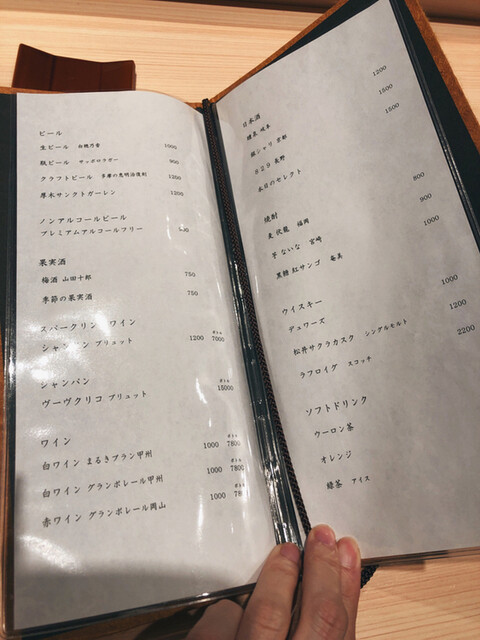 ビール
生ビール 白穂乃香 1000
瓶ビール サッポロラガー 900
クラフトビール 多摩の恵明治復刻 1200
厚木サンクトガーレン 1200
ノンアルコールビール
プレミアムアルコールフリー
果実酒
梅酒 山田十郎 750
季節の果実酒 750
スパークリン ワイン
シャンパン ブリュット 1200 7000
シャンパン
ボトル
ヴーヴクリコ ブリュット 15000
ワイン
ボトル
白ワイン まるきブラン甲州 1000 7800
白ワイン グランポレール甲州 1000 7800
赤ワイン グランポレール岡山 1000 780
日本酒 1200
1500
銀シャリ 京都 1500
829 長野
本日のセレクト
焼酎
麦 伏龍 福岡 800
芋 ないな 宮崎 900
黒糖 紅サンゴ 奄美 1000
ウイスキー
デュワーズ 1000
松井サクラカスク シングルモルト 1200
ラフロイグ スコッチ 2200
ソフトドリンク
ウーロン茶
オレンジ
緑茶 アイス